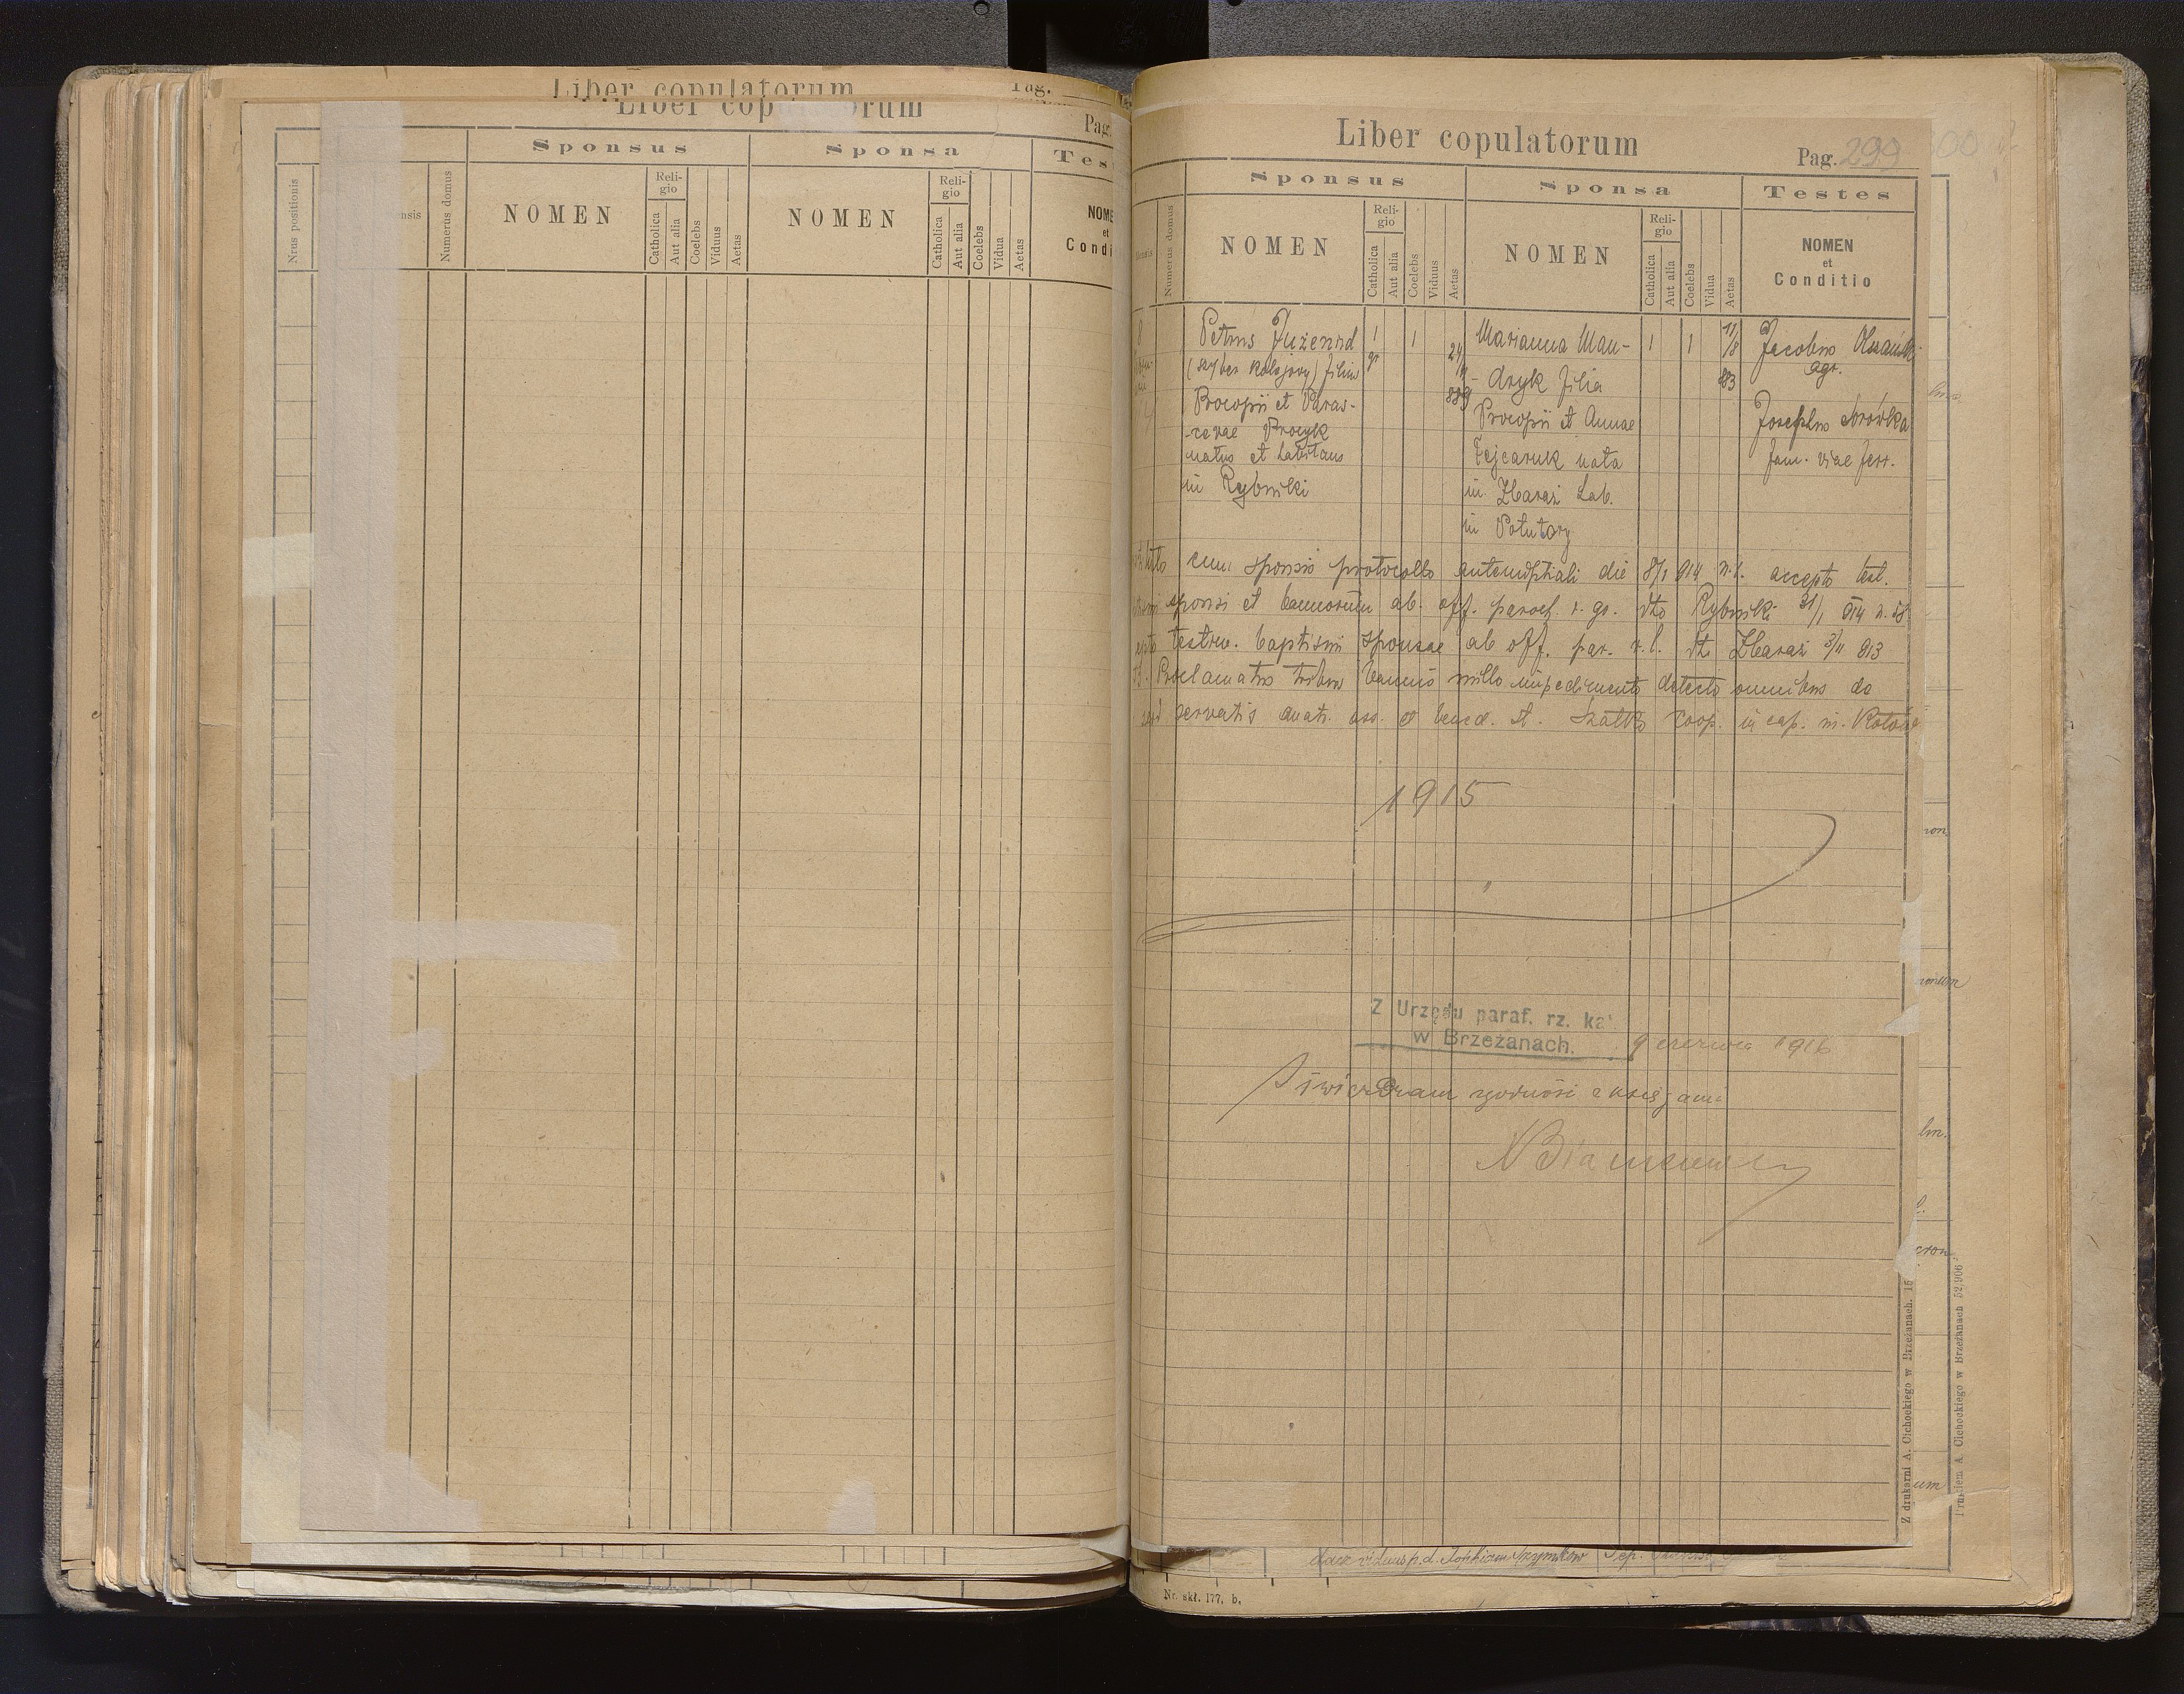 Liber copulatorum
Liber copulatorum
Pag.
Sponsus
Sponsa
Nrus positionis
Numerus domus
NOMEN
Religio
Catholica
Aut alia
Coelebs
Viduus
Aetas
NOMEN
Religio
Catholica
Aut alia
Coelebs
Vidua
Aetas
NOME
et
Condi
Liber copulatorum
Pag. 299
Sponsus
Sponsa
Testes
Numerus domus
NOMEN
Religio
Catholica
Aut alia
Coelebs
Viduus
Aetas
NOMEN
Religio
Catholica
Aut alia
Coelebs
Vidua
Aetas
NOMEN
et
Conditio
8 Petrus 1 1 Marianna Man- 1 1 11/8 Jacobus
filius gr 24/ - dryk filia 883 agr.
Procopii et Paras- 889 Procopii et Annae Josephus
-cevae Procyk
natus et habitans Fejcaruk nata fam. viae ferr.
in Rybniki in Zbaraż hab.
in Potutory
cum sponsis protocollo antenuptiali die 8/1 914 n. accepto test.
sponsi et bannorum ab off. paroch. r. gr. dto Rybniki 31/1 914 n. 18
testim. baptismi sponsae ab off. par. r. l. dto Zbaraż 3/11 913
Proclamatis tribus bannis nullo impedimento detecto omnibus de
servatis matr. ass. et bened. st. Szatko coop. in cap. in
1915
Z Urzędu paraf. rz. ka
w Brzeżanach. 9 czerwca 1916
Stwierdzam zgodność z księgami
Z drukarni A. Cichockiego w Brzeżanach.
Drukiem A. Cichockiego w Brzeżanach 52,906
Nr. skł. 177. b.